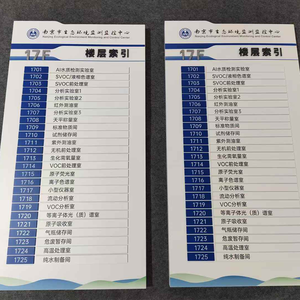 南京市生态环境监测监控中心
17F 楼层索引
1701 AI水质检测实验室
1702 SVOC液相色谱室
1703 SVOC前处理室
1704 分析实验室1
1705 分析实验室2
1706 红外测油室
1708 天平称量室
1709 标准物质间
1710 试剂储存间
1711 紫外测油室
1712 无机前处理室
1713 生化需氧量室
1714 VOC前处理室
1715 原子荧光室
1716 离子色谱室
1717 小型仪器室
1718 流动分析室
1719 VOC分析室
1720 等离子体光（质）谱室
1721 原子吸收室
1722 气瓶储存间
1723 危废暂存间
1724 高温处理室
1725 纯水制备间
南京市生态环境监测监控中心
17F 楼层索引
1701 AI水质检测实验室
1702 SVOC液相色谱室
1703 SVOC前处理室
1704 分析实验室1
1705 分析实验室2
1706 红外测油室
1708 天平称量室
1709 标准物质间
1710 试剂储存间
1711 紫外测油室
1712 无机前处理室
1713 生化需氧量室
1714 VOC前处理室
1715 原子荧光室
1716 离子色谱室
1717 小型仪器室
1718 流动分析室
1719 VOC分析室
1720 等离子体光（质）谱室
1721 原子吸收室
1722 气瓶储存间
1723 危废暂存间
1724 高温处理室
1725 纯水制备间